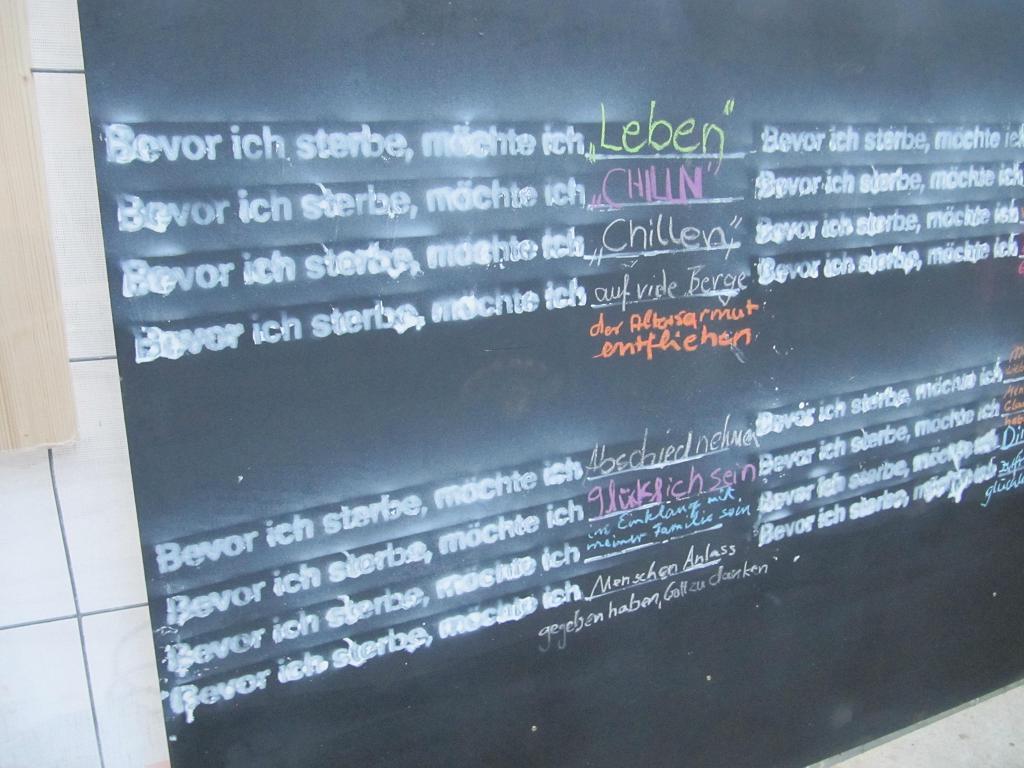 Bevor ich sterbe, möchte ich „Leben"
Bevor ich sterbe, möchte ich „CHILLN"
Bevor ich sterbe, möchte ich „Chillen"
Bevor ich sterbe, möchte ich auf viele Berge
der Altersarmut
entfliehen
Bevor ich sterbe, möchte ich Abschied nehmen
Bevor ich sterbe, möchte ich glücklich sein
Bevor ich sterbe, möchte ich im Einklang mit
meiner Familie sein
Bevor ich sterbe, möchte ich Menschen Anlass
gegeben haben, Gott zu danken
Bevor ich sterbe, möchte ich
Bevor ich sterbe, möchte ich
Bevor ich sterbe, möchte ich
Bevor ich sterbe, möchte ich
Bevor ich sterbe, möchte ich
Bevor ich sterbe, möchte ich
Bevor ich sterbe, möchte ich
Bevor ich sterbe, möchte ich